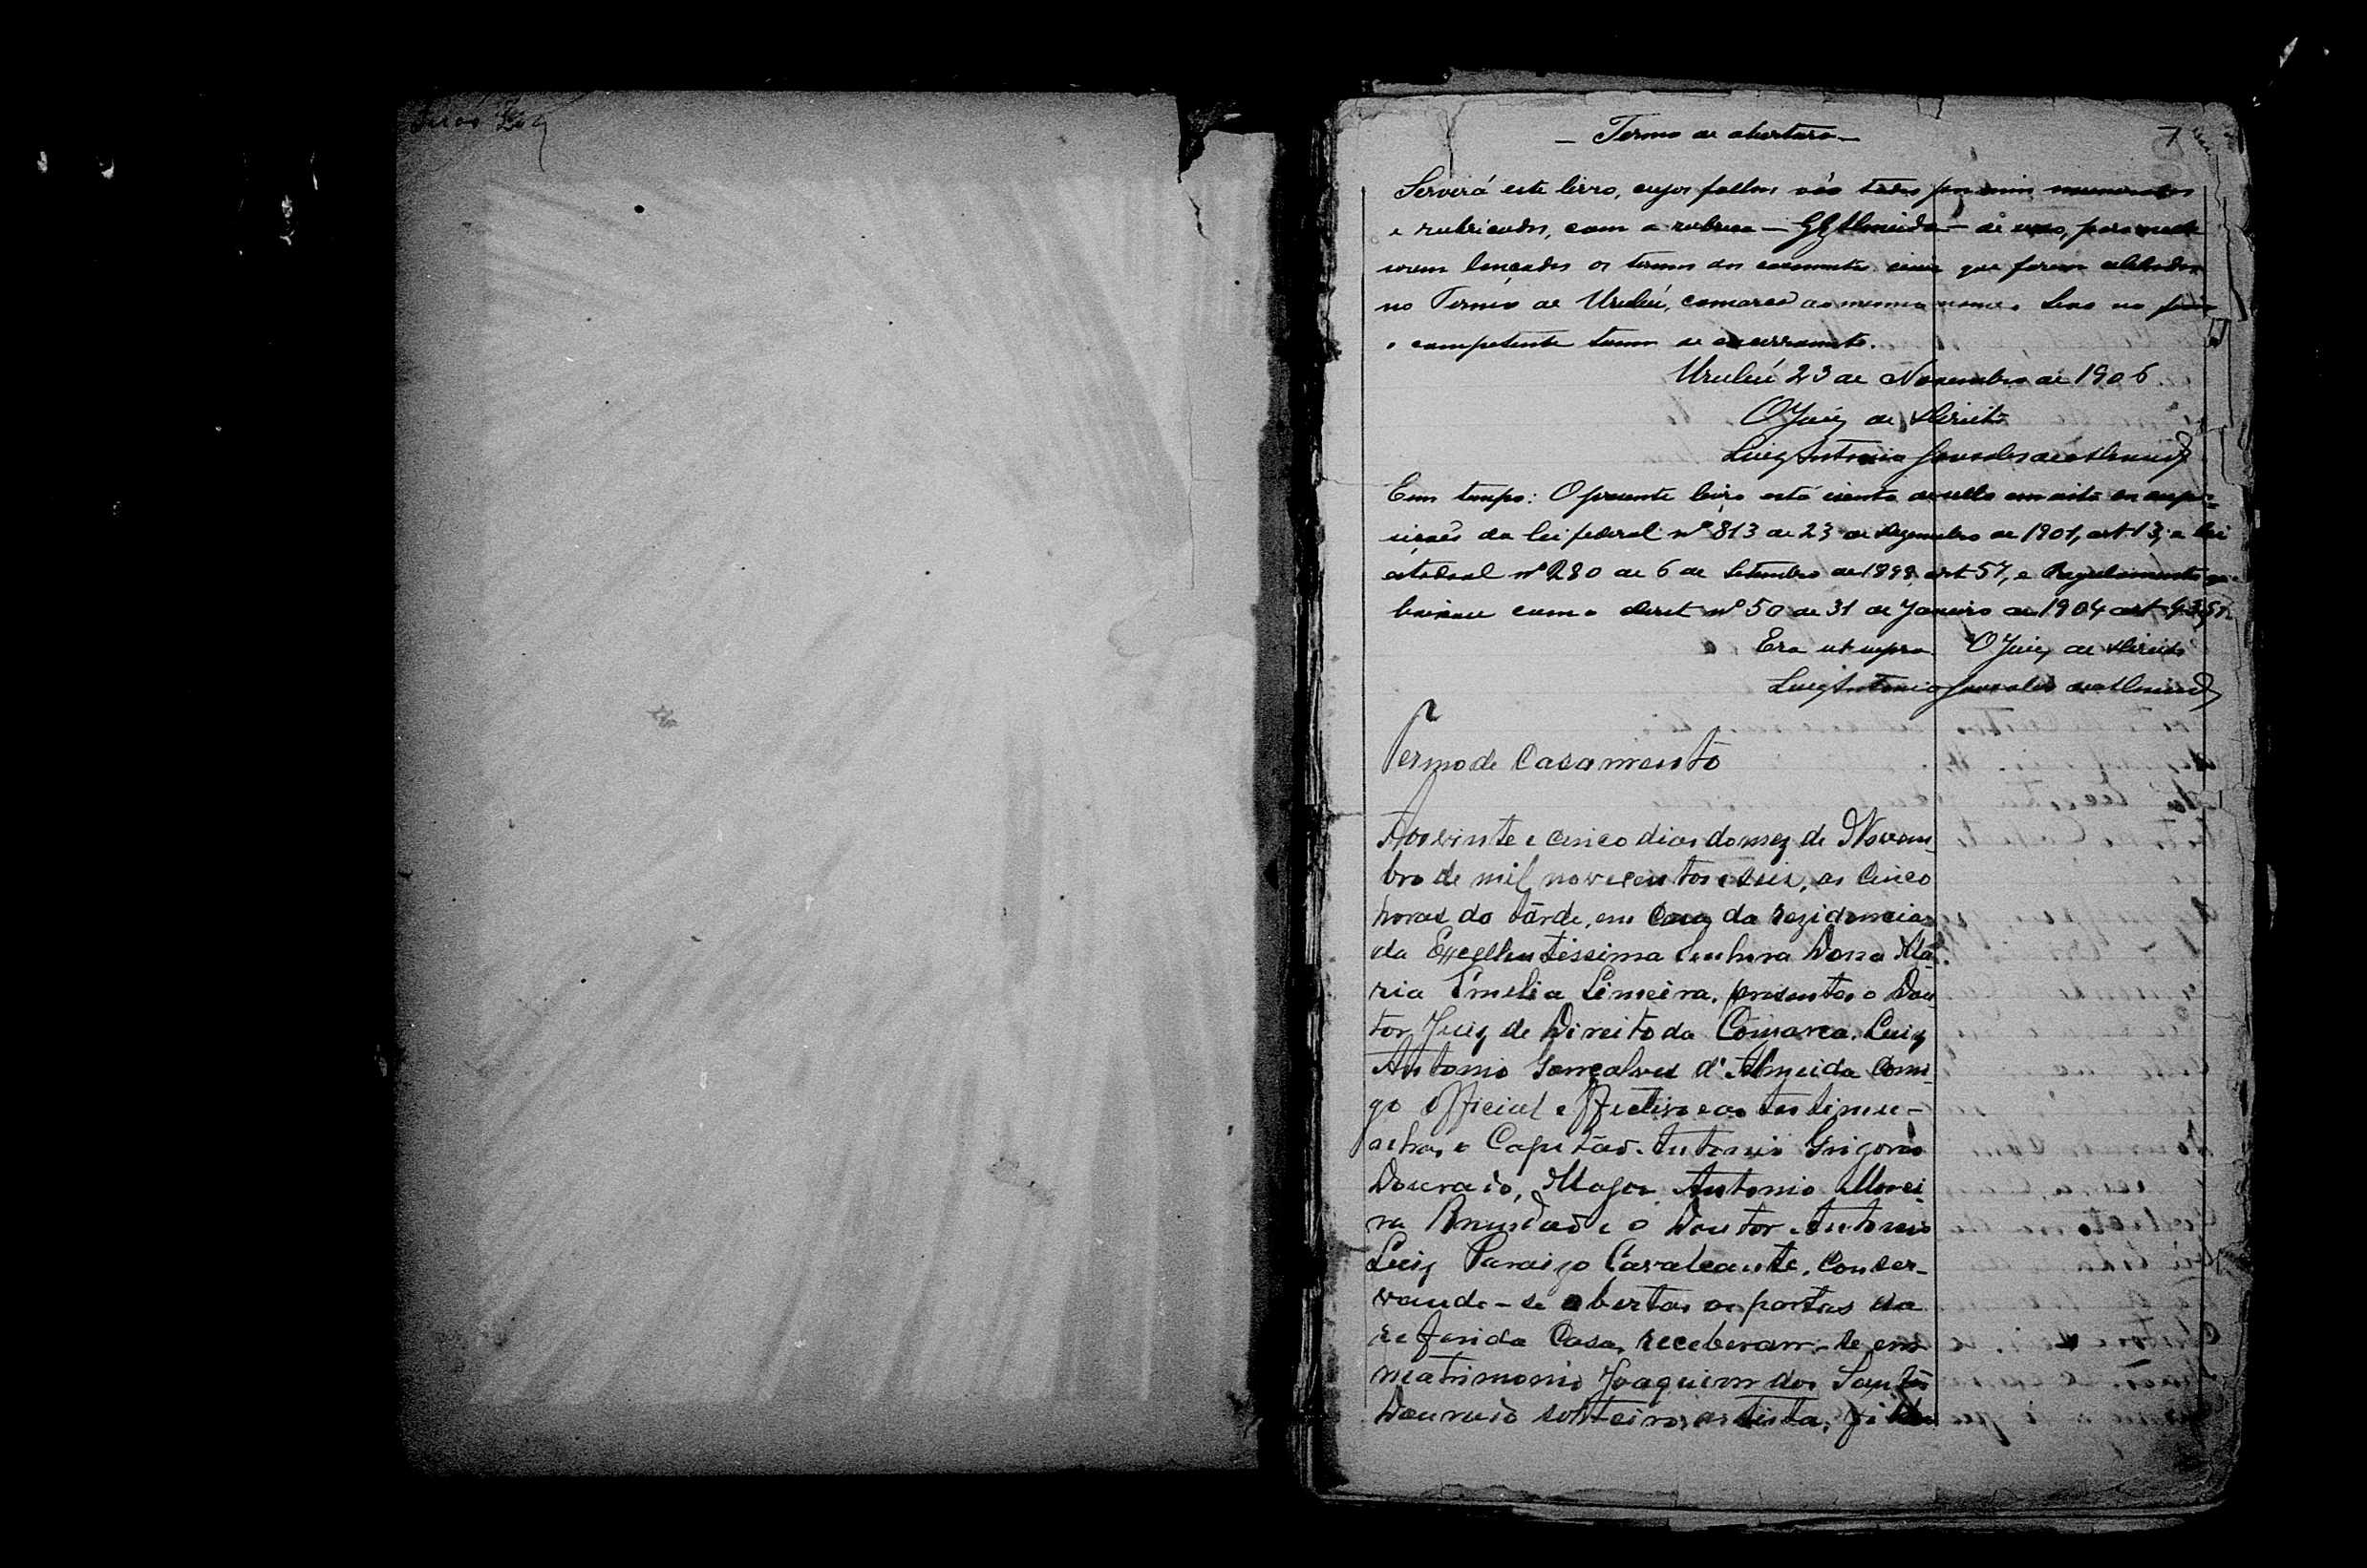 — Termo de abertura —
Servirá este livro, cujas folhas vão todas por mim numeradas
e rubricadas, com a rubrica — GAlmeida — de uso, para nelle
serem lançados os termos dos casamentos civis que forem celebrados
no Termo de Urubú, comarca do mesmo nome. Leva no fim
o competente termo de encerramento.
Urubú 23 de Novembro de 1906.
O Juiz de Direito
Luiz Antonio Gonsalves de Almeida
Em tempo: O presente livro está isento de sello em vista das dispo-
sições da lei federal nº 813 de 23 de Dezembro de 1901, art 13, a lei
estadoal nº 280 de 6 de Setembro de 1898 art 57, e Regulamento que
baixou com o decret nº 50 de 31 de Janeiro de 1904 art
Era ut supra. O Juiz de Direito
Luiz Antonio Gonsalves de Almeida
Termo de Casamento
Aos vinte e cinco dias do mez de Novem-
bro de mil novecentos e seis, as cinco
horas da tarde, em casa da rezidencia
da Excellentissima Senhora Dona Ma-
ria Emelia Limeira, presentes o Dou-
tor Juiz de Direito da Comarca, Luiz
Antonio Gonçalves d'Almeida comi-
go official effectivo e as testimu-
nhas, o Capitão Antonio Grigorio
Dourado, Major Antonio Morei-
ra Brandão e o Doutor Antonio
Luiz Paraizo Cavalcante, conser-
vando-se abertas as portas da
referida Casa, receberam-se em
matrimonio Joaquim dos Santos
Dourado solteiro, artista, filho